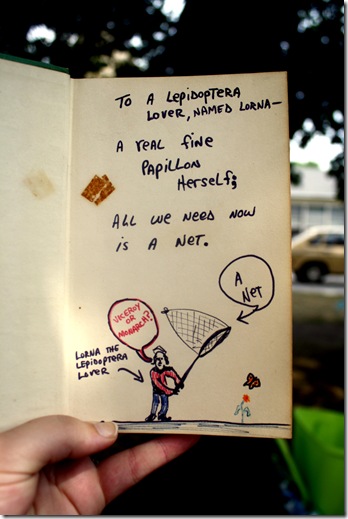 To A LepidopTera
Lover, NAMED LORNA—
A real fine
Papillon
Herself;
All we need now
is A NeT.
A
NeT
Viceroy
or
Monarch?
Lorna The
Lepidoptera
Lover